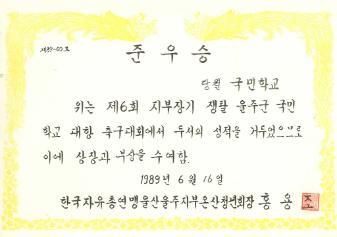 제89-00호
준우승
당월 국민학교
위는 제6회 지부장기 쟁탈 울주군 국민
학교 대항 축구대회에서 두서의 성적을 거두었으므로
이에 상장과 부상을 수여함.
1989년 6월 16일
한국자유총연맹울산울주지부온산청년회장 홍용조